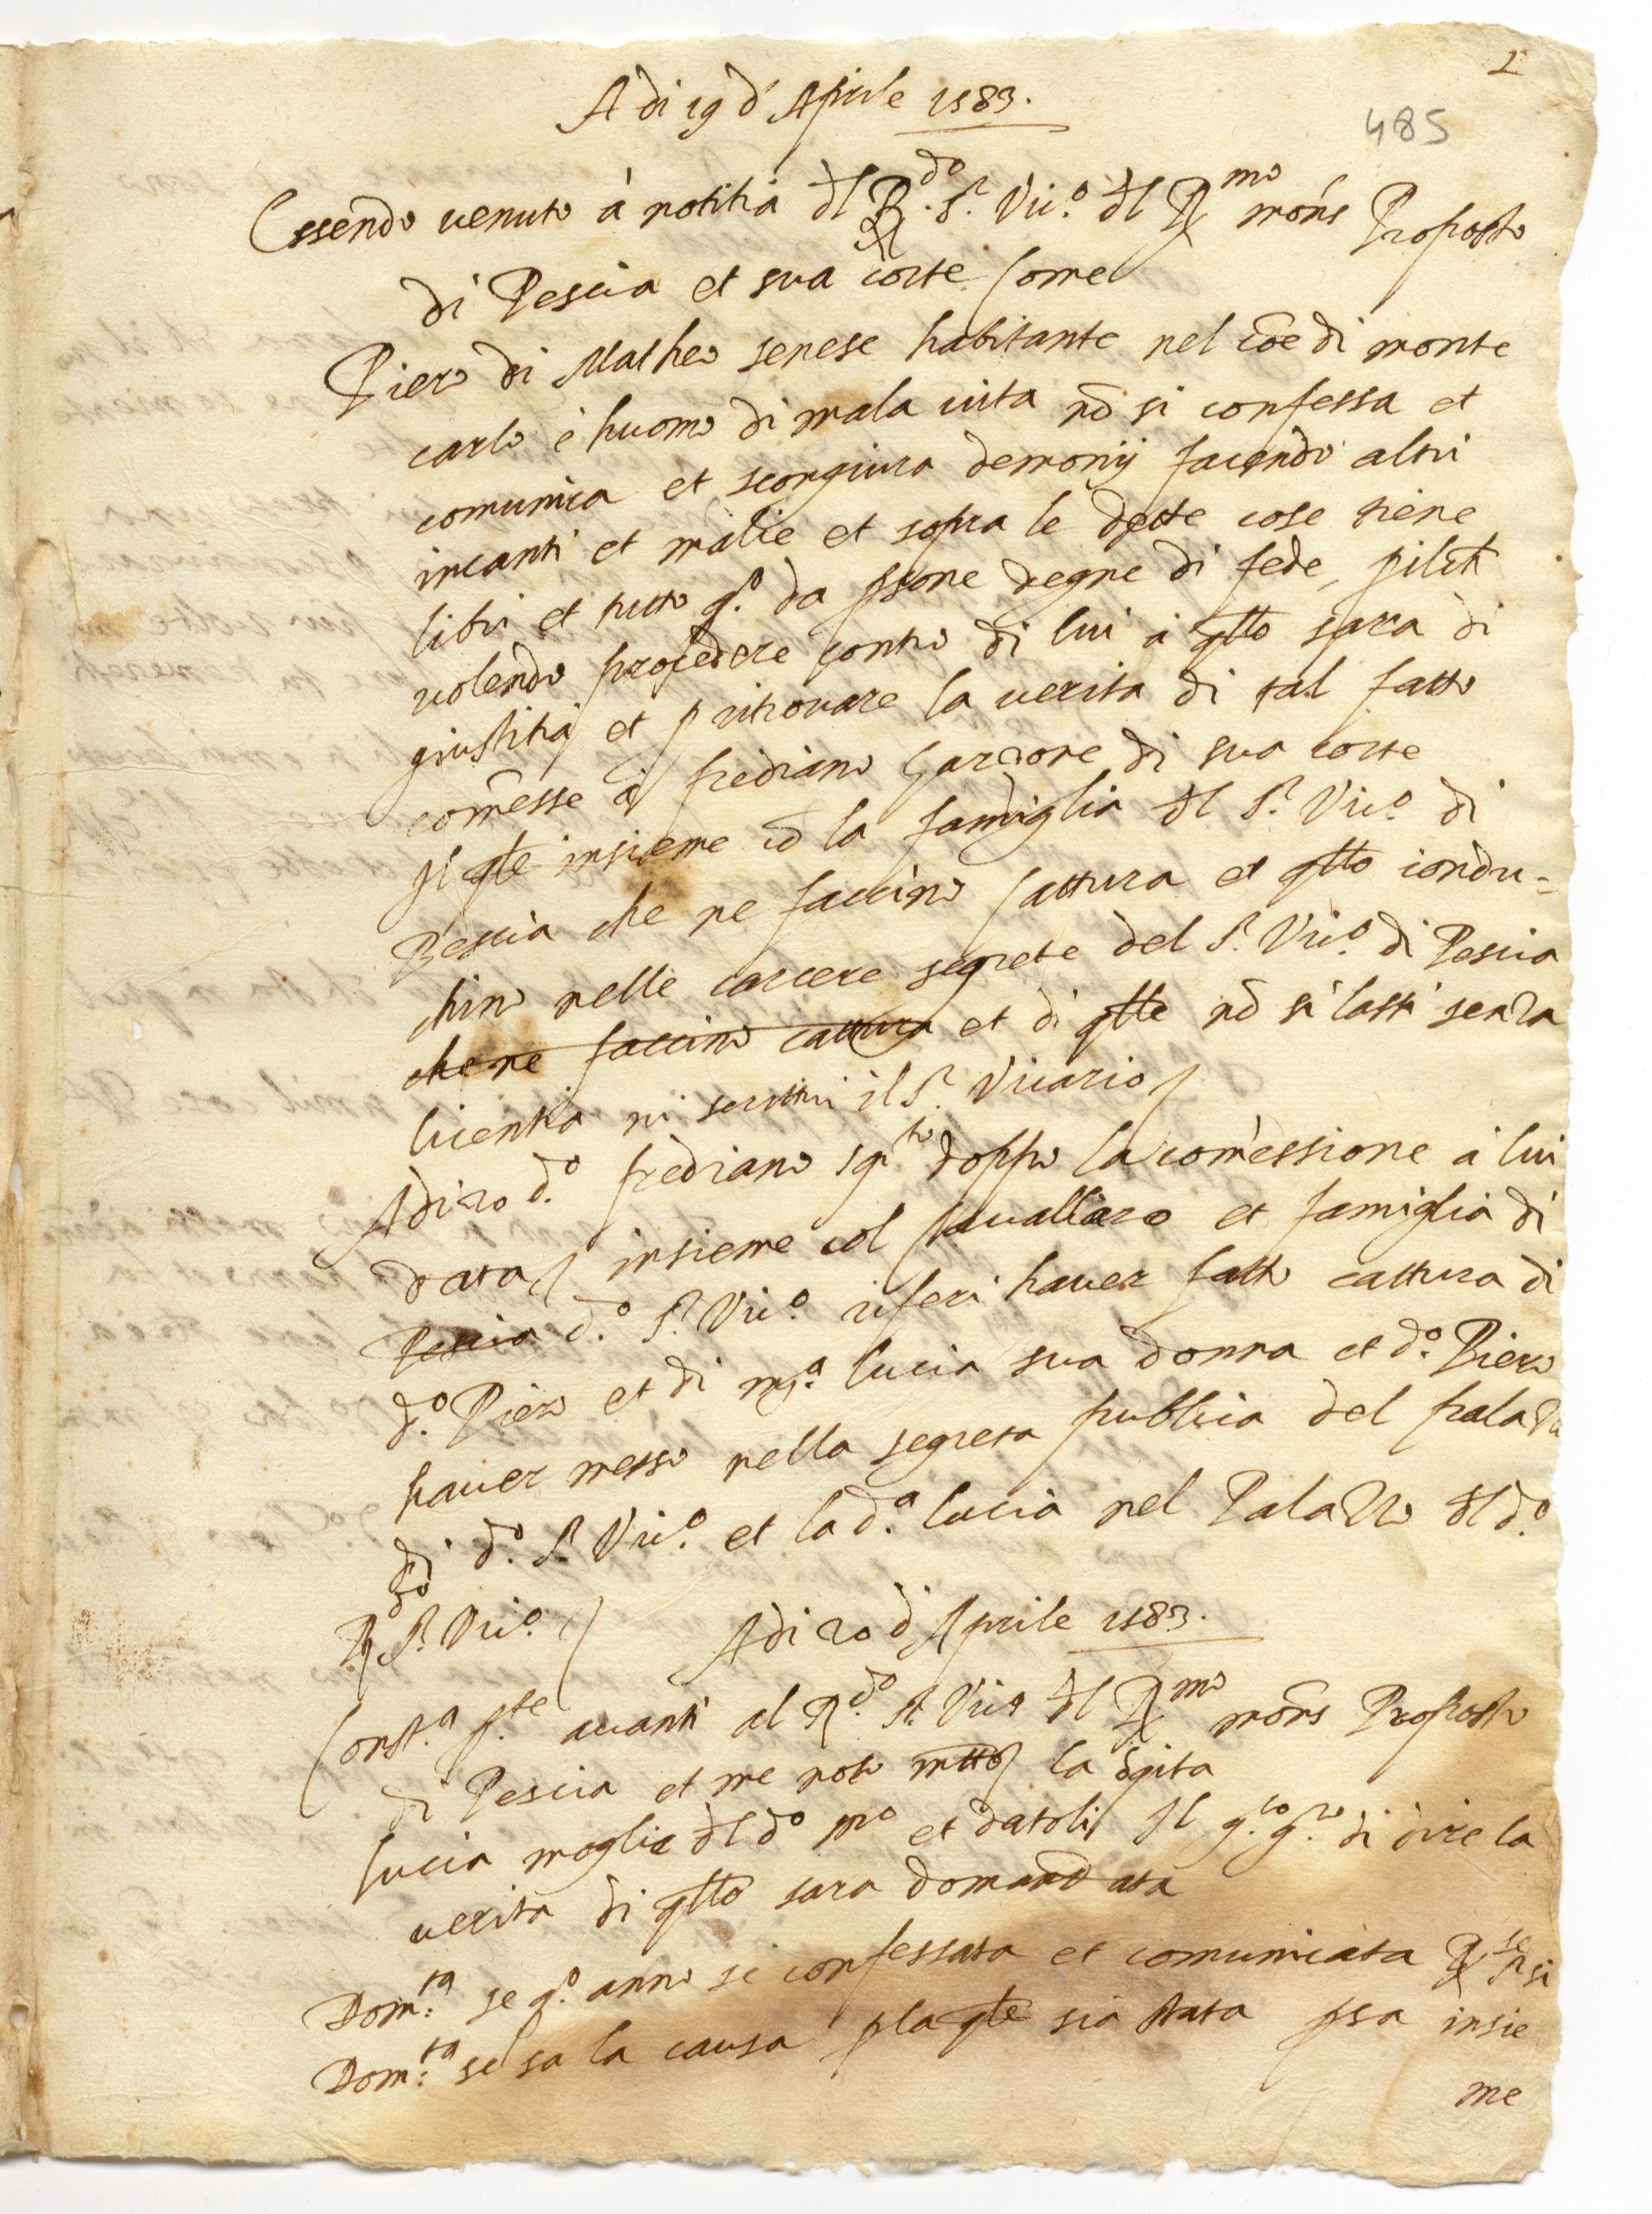 1
A di 19 d' Aprile 1583.
485
Essendo venuto à notitia dl R.do S.r Vic.o dl R.mo mons Proposto
di Pescia et sua corte come
Piero di Matheo senese habitante nel coe di monte
carlo è huomo di mala vita nō si confessa et
comunica et scongiura demonij facendo altri
incanti et malie et sopra le dette cose tiene
libri et tutto q.o da psone degne di fede, pilch
volendo procedere contro di lui à qto sara di
giustitia et p ritrovare la verita di tal fatto
comesse à frediano Garzone di sua corte
Il qle insieme cō la famiglia dl S.r Vic.o di
Pescia che ne faccino cattura et qto condu=
chino nelle carcere segrete del S.r Vic.o di Pescia
che ne faccino cattura et di qlle nō si lassi senza
licentia ni scritti il S.r Vicario
Adi 20 d.o frediano sqr.to doppo la comessione à lui
data insieme col Cavallaro et famiglia di
Pescia d.o S.r Vic.o riferi haver fatto cattura di
d.o Piero et di m.a lucia sua donna et d.o Piero
haver messo nella segreta publica del palazo
di d.o S.r Vic.o et la d.a lucia nel Palazzo dl d.o
R.do S.r Vic.o
Adi 20 d Aprile 1583.
Const.a p.te avanti al R.do S.r Vic.o dl R.mo mons Proposto
di Pescia et me noto la
lucia moglie dl d.o et datoli Il g.to g.ro di dire la
verita di qto sara domandata
Dom.ta se q.o anno si confessata et comunicata R.se si
Dom.ta se sa la causa p la qle sia stata psa insie
me